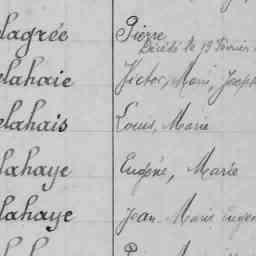 elagrée Pierre
Décédé le 19 Février
elahaie Victor, Marie, Joseph
elahais Louis, Marie
elahaye Eugène, Marie
elahaye Jean Marie